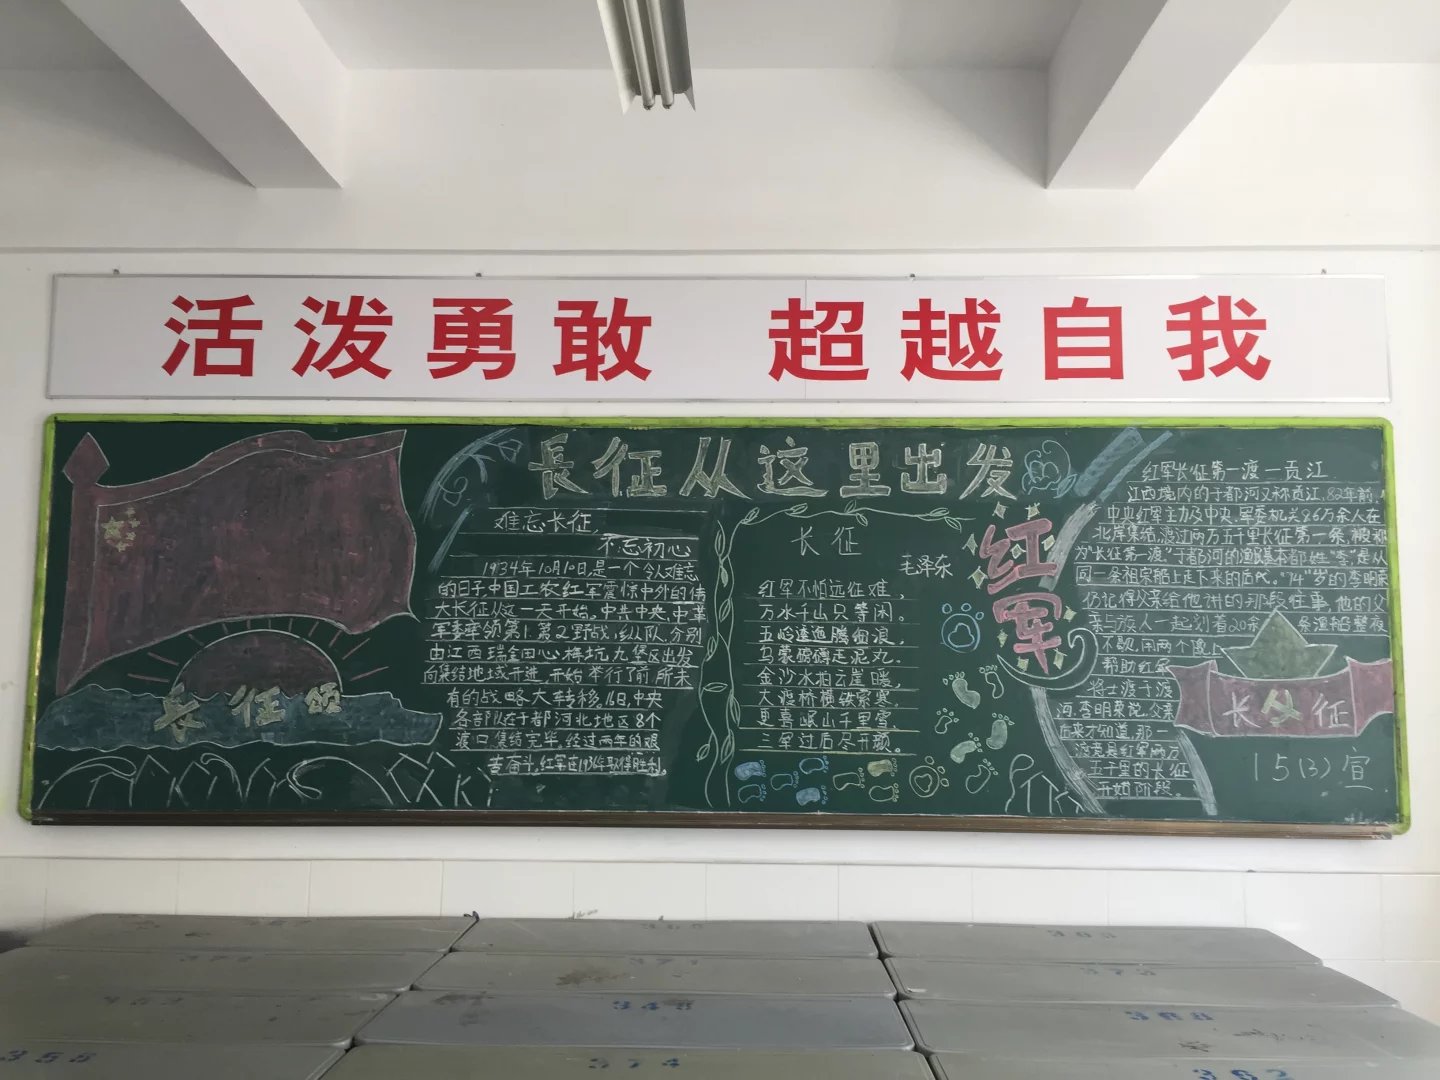 活泼勇敢 超越自我
長征从这里出发
难忘长征,
不忘初心
1934年10月10日,是一个令人难忘
的日子,中国工农红军震惊中外的伟
大长征从这一天开始。中共中央、中革
军委率领第1、第2野战纵队,分别
由江西瑞金田心、梅坑、九堡区出发
向集结地域开进,开始举行了前所未
有的战略大转移。16日,中央
各部队在于都河北地区8个
渡口集结完毕,经过两年的艰
苦奋斗,红军在1936年取得胜利。
長征颂
长征
毛泽东
红军不怕远征难,
万水千山只等闲。
五岭逶迤腾细浪,
乌蒙磅礴走泥丸。
金沙水拍云崖暖,
大渡桥横铁索寒。
更喜岷山千里雪,
三军过后尽开颜。
红军
红军长征第一渡—贡江
江西境内的于都河又称贡江,82年前,
中央红军主力及中央、军委机关8.6万余人在
北岸集结,渡过两万五千里长征第一条,被称
为"长征第一渡"于都河的渔民基本都姓"李",是从
同一条祖宗船上走下来的后代。"74"岁的李明荣
仍记得父亲给他讲的那段往事,他的父
亲与族人一起划着20余条渔船整夜
不歇,用两个晚上
帮助红军
将士渡于渡
河,李明荣说,父亲
后来才知道,那一
渡竟是红军两万
五千里的长征
开始阶段。
长征
15(3)宣
348
368
358
374
362